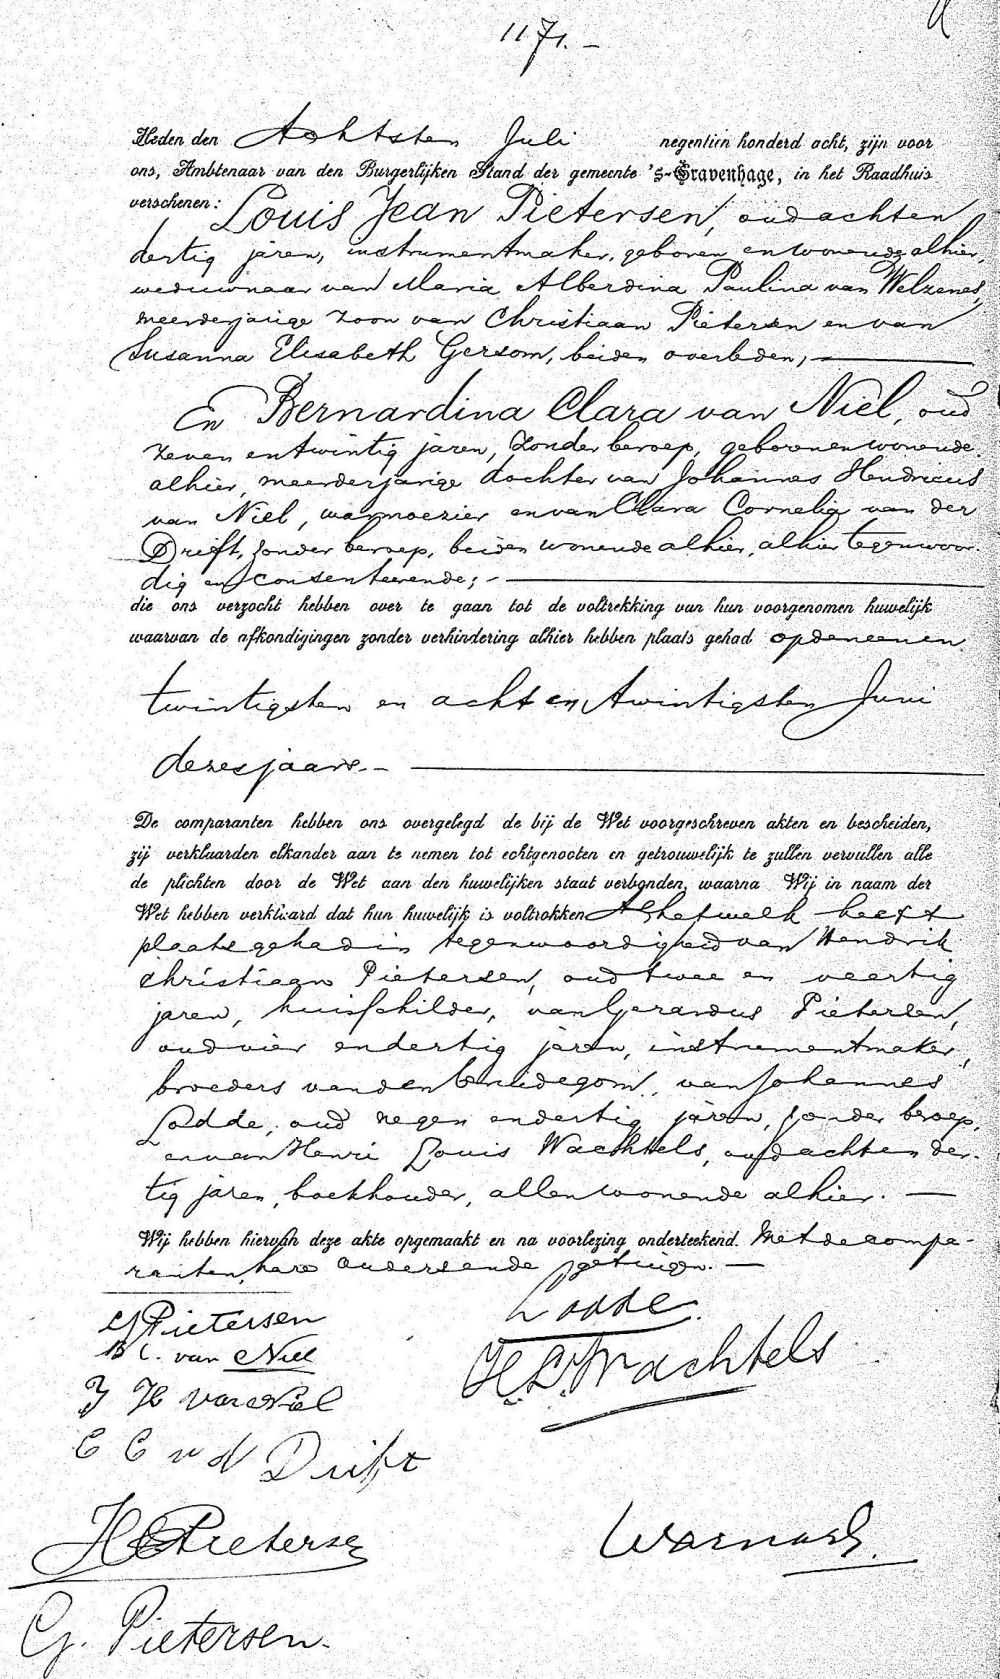 1171. —
Heden den Achtsten Juli negentien honderd acht, zijn voor
ons, Ambtenaar van den Burgerlijken Stand der gemeente 's-Gravenhage, in het Raadhuis
verschenen: Louis Jean Pietersen, oud acht en
dertig jaren, instrumentmaker, geboren en wonende alhier,
weduwnaar van Maria Alberdina Paulina van Welzenes,
meerderjarige zoon van Christiaan Pietersen en van
Susanna Elisabeth Gersom, beiden overleden, —
En Bernardina Clara van Niel, oud
zeven en twintig jaren, zonder beroep, geboren en wonende
alhier, meerderjarige dochter van Johannes Hendricus
van Niel, warmoezier en van Clara Cornelia van der
Drift, zonder beroep, beiden wonende alhier, alhier tegenwoor-
dig en consenteerende; —
die ons verzocht hebben over te gaan tot de voltrekking van hun voorgenomen huwelijk
waarvan de afkondigingen zonder verhindering alhier hebben plaats gehad op den een en
twintigsten en acht en twintigsten Juni
dezes jaars. —
De comparanten hebben ons overgelegd de bij de Wet voorgeschreven akten en bescheiden,
zij verklaarden elkander aan te nemen tot echtgenooten en getrouwelijk te zullen vervullen alle
de plichten door de Wet aan den huwelijken staat verbonden, waarna Wij in naam der
Wet hebben verklaard dat hun huwelijk is voltrokken. Al hetwelk heeft
plaats gehad in tegenwoordigheid van Hendrik
Christiaan Pietersen, oud twee en veertig
jaren, huisschilder, van Gerardus Pietersen,
oud vier en dertig jaren, instrumentmaker,
broeders van den bruidegom, van Johannes
Lodde, oud negen en dertig jaren, zonder beroep,
en van Henri Louis Wachtels, oud acht en der-
tig jaren, boekhouder, allen wonende alhier. —
Wij hebben hiervan deze akte opgemaakt en na voorlezing onderteekend. Met de compa-
ranten, hare ouders en de getuigen. —
LJ Pietersen
B C. van Niel
J H van Niel
C C v d Drift
H C Pietersen
G. Pietersen.
Lodde.
H. L. Wachtels